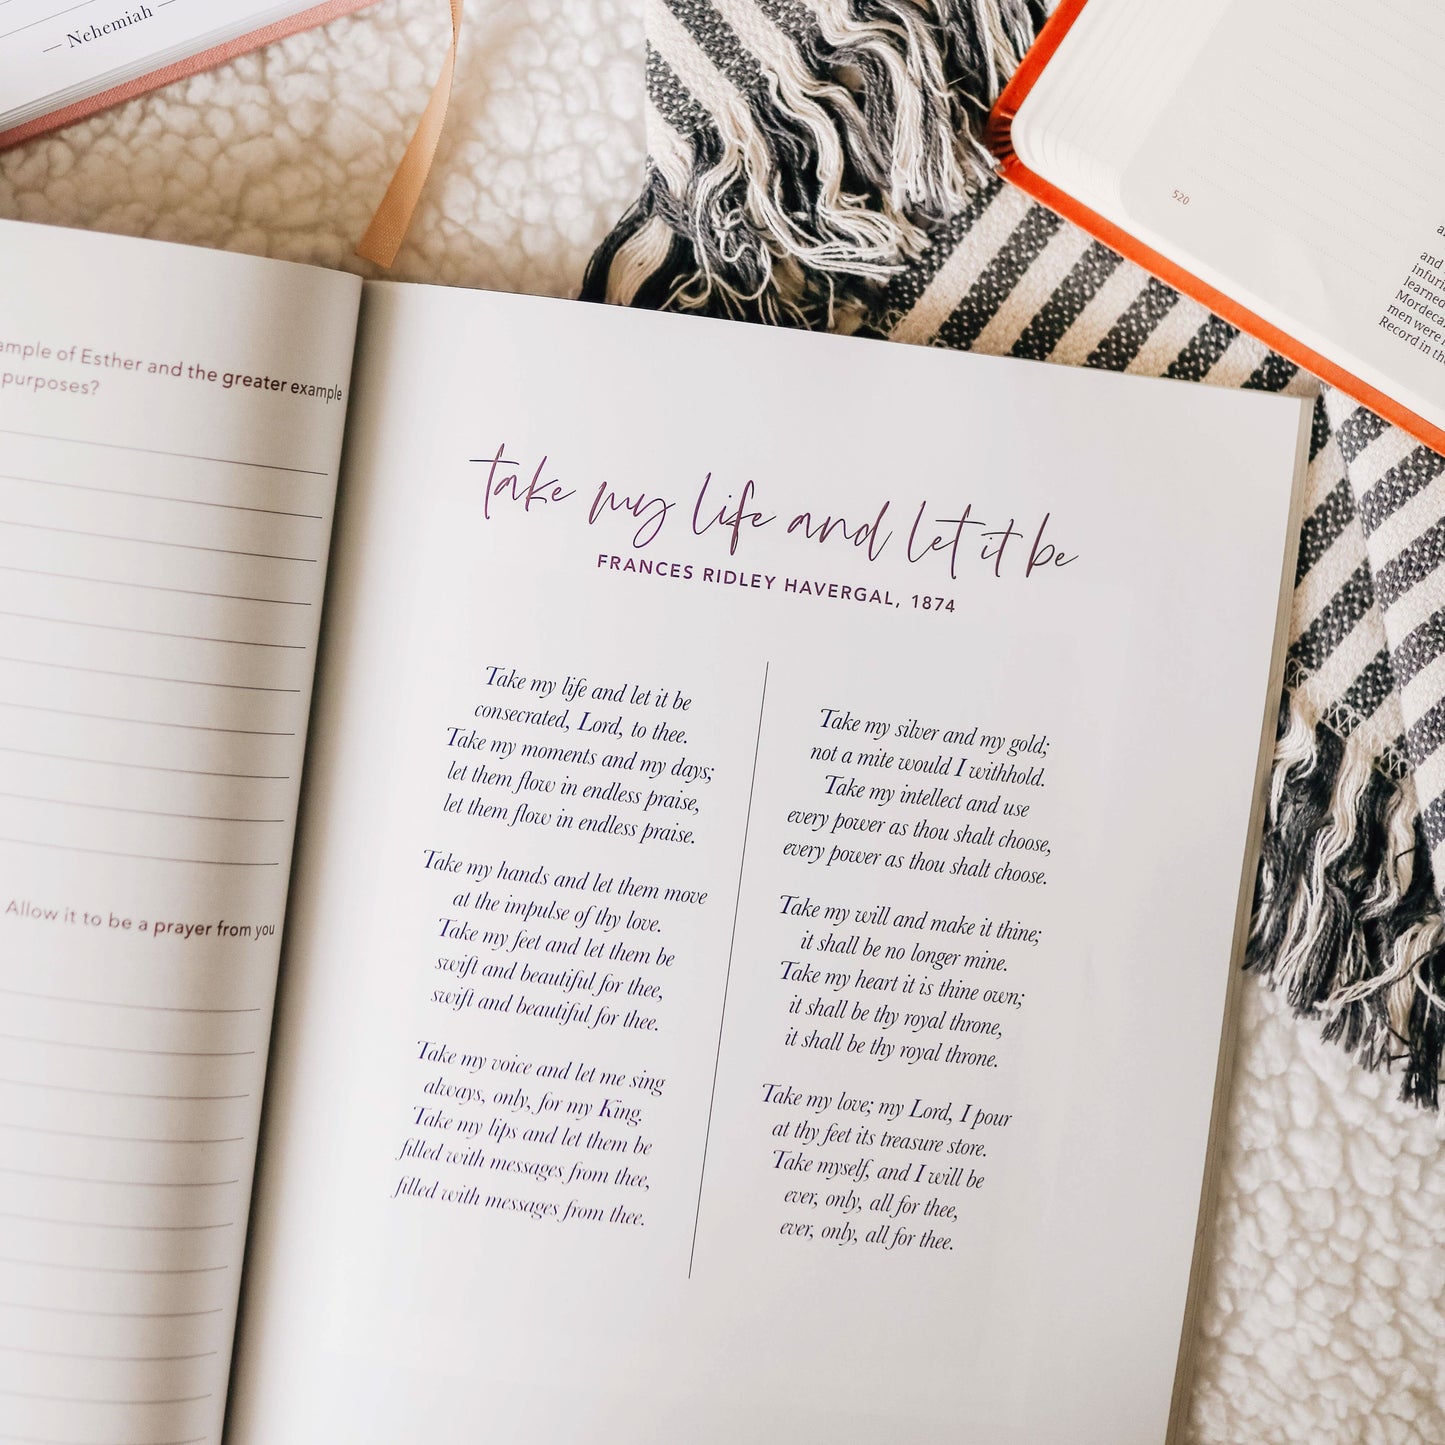 — Nehemiah —
520
and
infuri
learned
Mordeca
men were
Record in the
ample of Esther and the greater example
purposes?
Allow it to be a prayer from you
take my life and let it be
FRANCES RIDLEY HAVERGAL, 1874
Take my life and let it be
consecrated, Lord, to thee.
Take my moments and my days;
let them flow in endless praise,
let them flow in endless praise.
Take my hands and let them move
at the impulse of thy love.
Take my feet and let them be
swift and beautiful for thee,
swift and beautiful for thee.
Take my voice and let me sing
always, only, for my King.
Take my lips and let them be
filled with messages from thee,
filled with messages from thee.
Take my silver and my gold;
not a mite would I withhold.
Take my intellect and use
every power as thou shalt choose,
every power as thou shalt choose.
Take my will and make it thine;
it shall be no longer mine.
Take my heart it is thine own;
it shall be thy royal throne,
it shall be thy royal throne.
Take my love; my Lord, I pour
at thy feet its treasure store.
Take myself, and I will be
ever, only, all for thee,
ever, only, all for thee.